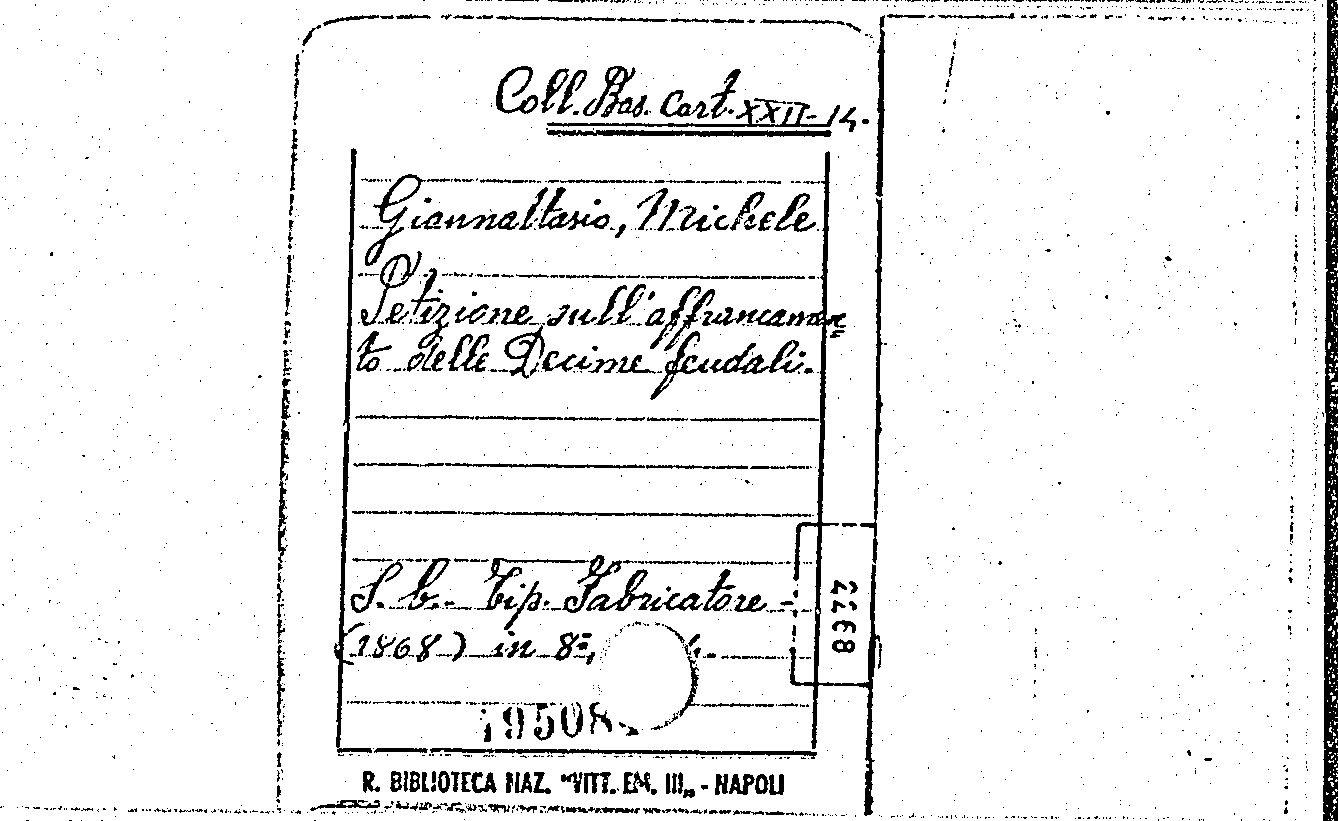 Coll. Bas. Cart. XXII-14.
Giannattasio, Michele
Petizione sull'affrancamen=
to delle Decime feudali.
S. b. - Tip. Fabricatore -
(1868) in 8º,
19508
R. BIBLIOTECA NAZ. "VITT. EM. III„ - NAPOLI